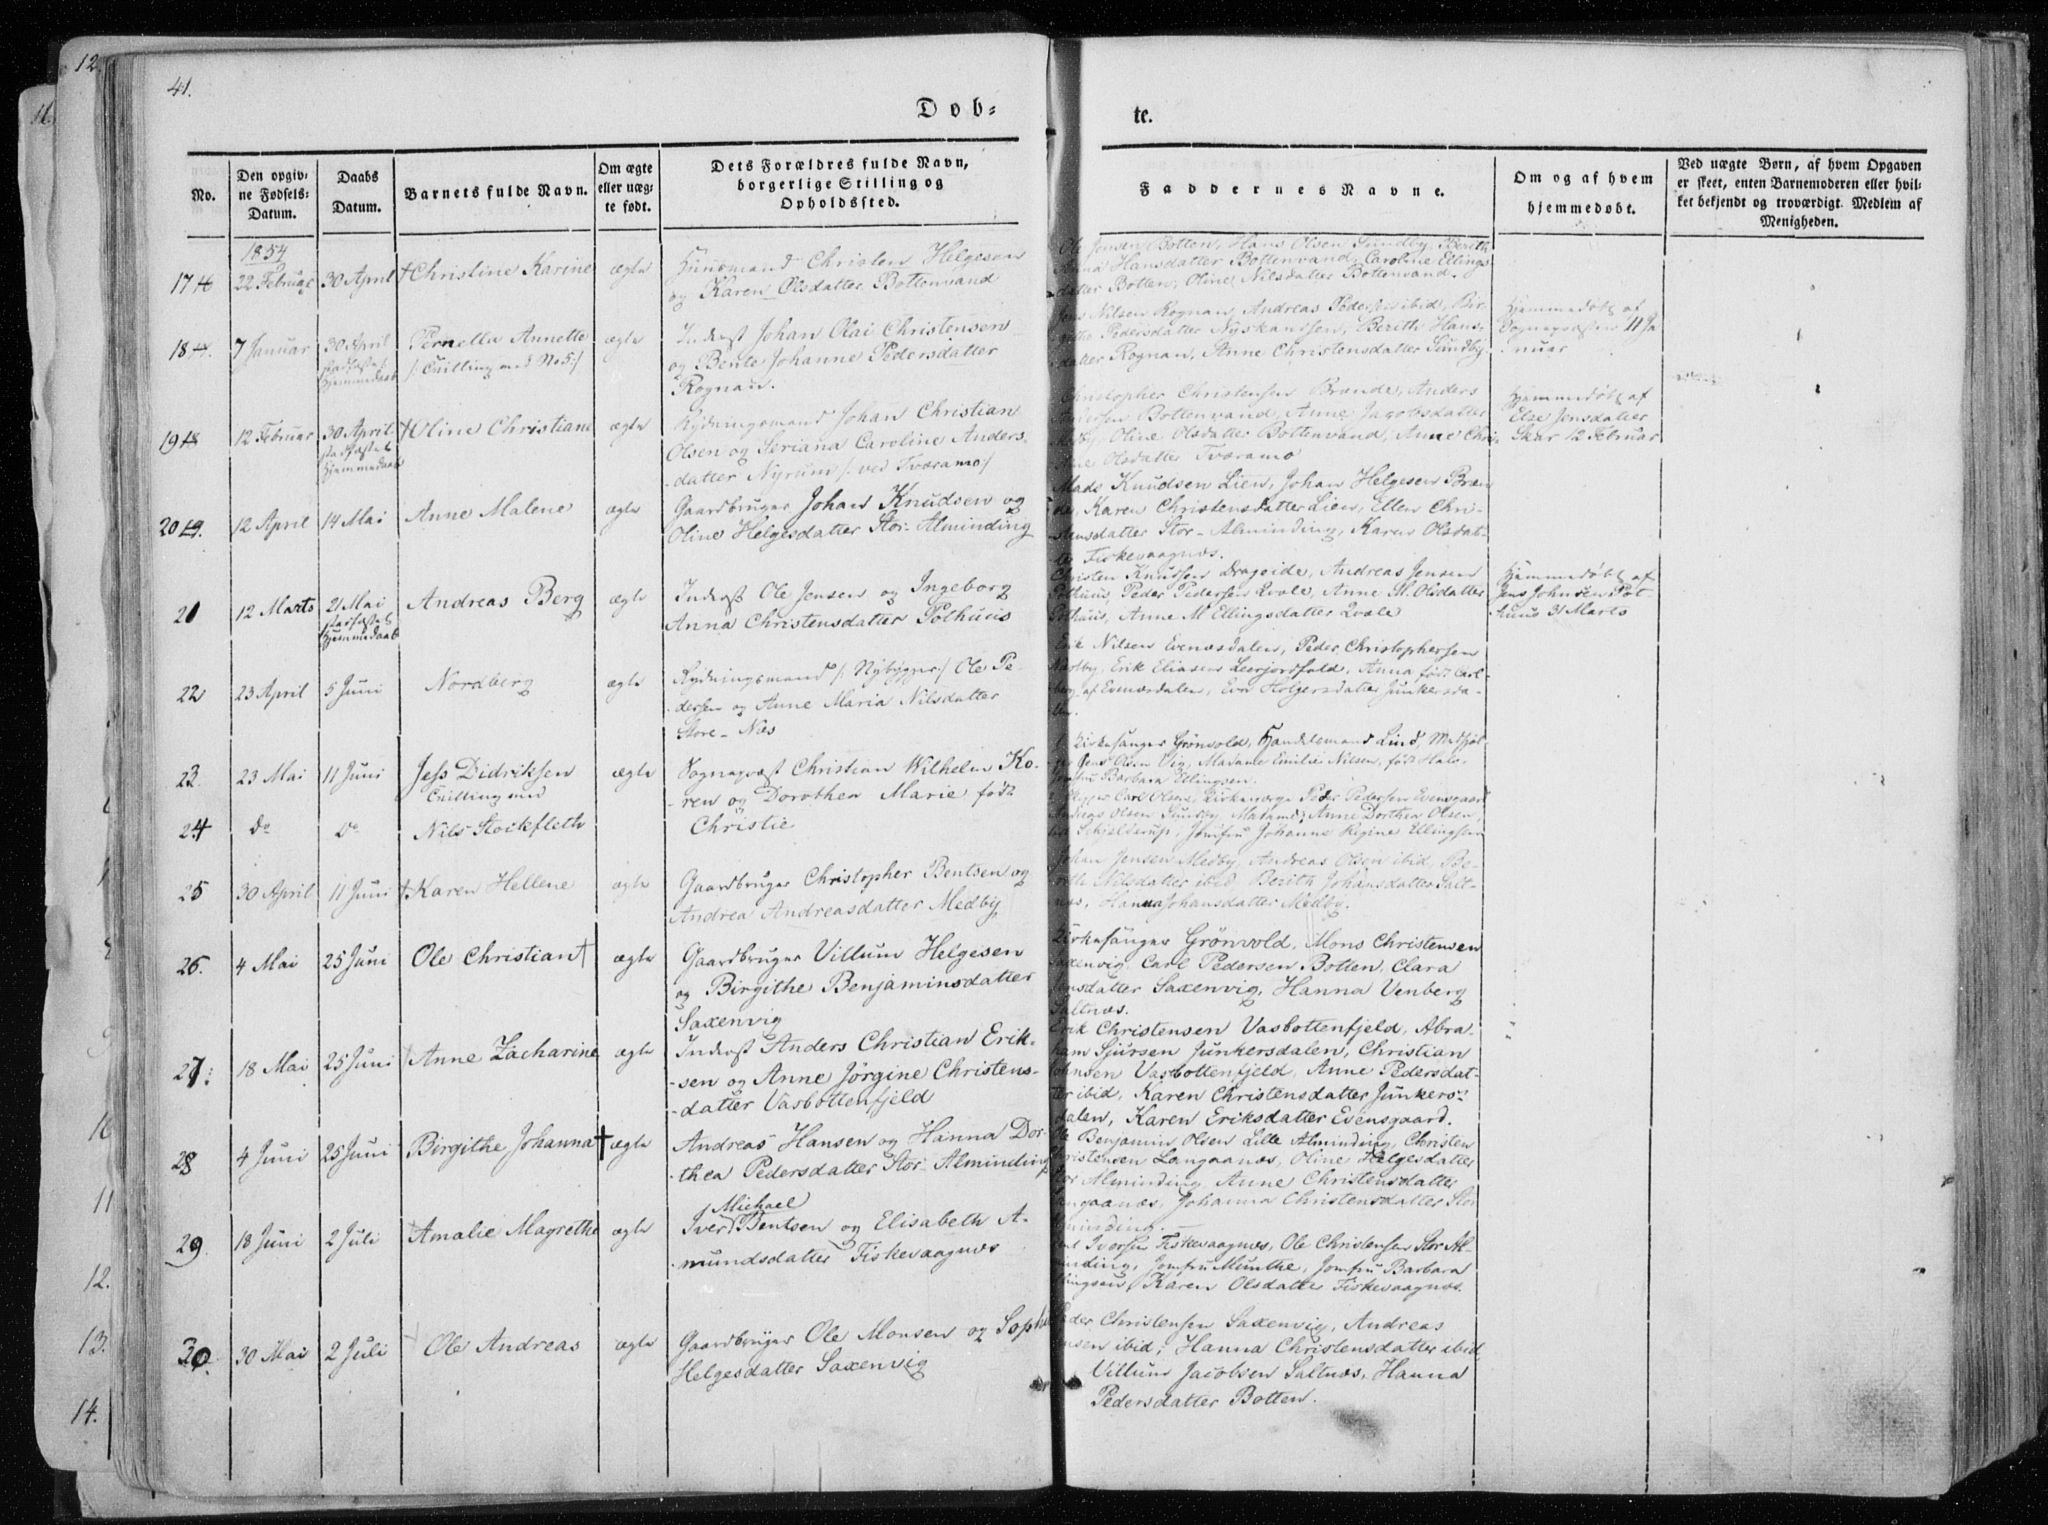 12.
11.
41.
Døb-
te.
No.
Den opgiv-
ne Fødsels-
Datum.
Daabs
Datum.
Barnets fulde Navn.
Om ægte
eller uæg-
te født.
Dets Forældres fulde Navn,
borgerlige Stilling og
Opholdssted.
Faddernes Navne.
Om og af hvem
hjemmedøbt.
Ved uægte Børn, af hvem Opgaven
er skeet, enten Barnemoderen eller hvil-
ket bekjendt og troværdigt Medlem af
Menigheden.
1854
17 16 22 Februar 30 April † Christine Karine ægte
Huusmand Christen Helgesen
og Karen Olsdatter Bottenvand
Ole Jensen Botten, Hans Olsen Sundby, Berith
Anna Hansdatter Bottenvand, Caroline Ellings-
datter Botten, Oline Nilsdatter Bottenvand.
18 17. 7 Januar 30 April
stadfæstet
Hjemmedaab
Pernella Annette
/: Tvilling med No 5 :/
ægte
Inderst Johan Olai Christensen
og Bente Johanne Pedersdatter
Rognan.
Jens Nilsen Rognan, Andreas Pedersen ibid, Bir-
githe Pedersdatter Nyskandsen, Berith Hans-
datter Rognan, Anne Christensdatter Sundby.
Hjemmedøbt af
Sognepræsten 11 Ja-
nuar
19 18 12 Februar 30 April
stadfæstet
Hjemmedaab
† Oline Christiane ægte
Rydningsmand Johan Christian
Olsen og Seriana Caroline Anders-
datter Nyrum /: ved Tværamo :/
Christopher Christensen Brænde, Anders
Andersen Bottenvand, Anne Jacobsdatter
Medby, Oline Olsdatter Bottenvand, Anne Chri-
stine Olsdatter Tværamo
Hjemmedøbt af
Else Jensdatter
Skar 12 Februar
20 19. 12 April 14 Mai Anne Malene ægte
Gaardbruger Johan Knudsen og
Oline Helgesdatter Stor-Alminding
Mads Knudsen Lien, Johan Helgesen Bræn-
de, Karen Christensdatter Lien, Ellen Chri-
stensdatter Stor-Alminding, Karen Olsdat-
ter Fiskevaagnæs.
21 12 Marts 21 Mai
stadfæstet
Hjemmedaab
Andreas Berg ægte
Inderst Ole Jensen og Ingeborg
Anna Christensdatter Pothuus
Christen Knudsen Drageide, Andreas Jensen
Pothuus, Peder Pedersen Qvale, Anne M. Olsdatter
Pothuus, Anne M Ellingsdatter Qvale
Hjemmedøbt af
Jens Johnsen Pot-
huus 31 Marts
22 23 April 5 Juni Nordberg ægte
Rydningsmand /: Nybygger :/ Ole Pe-
dersen og Anne Maria Nilsdatter
Store-Næs
Erik Nilsen Evenæsdalen, Peder Christophersen
Medby, Erik Eliasen Leerjordfald, Anna født Carl-
berg af Evenæsdalen, Eva Holgersdatter Junkersda-
len.
23. 23 Mai 11 Juni Jess Didriksen
Tvilling med
ægte
Sognepræst Christian Wilhelm Ko-
ren og Dorothea Marie født
Christie
Kirkesanger Grönvold, Handelsmand Lind, Medhjel-
per Jens Olsen Vig, Madame Emilie Nilsen, født Hals,
Jomfru Barbara Ellingsen.
24 Do Do Nils Stockfleth
Skipper Carl Olsen, Kirkeværge Peder Pedersen Evensgaard
Andreas Olsen Sundby, Madame Anne Dorthea Olsen,
født Schjelderup, Jomfru Johanne Regine Ellingsen
25 30 April 11 Juni † Karen Hellene ægte
Gaardbruger Christopher Bentsen og
Andrea Andreasdatter Medby
Johan Jensen Medby, Andreas Olsen ibid, Be-
reth Nilsdatter ibid, Berith Johansdatter Salt-
næs, Hanna Johansdatter Medby.
26. 4 Mai 25 Juni Ole Christian † ægte
Gaardbruger Villum Helgesen
og Birgithe Benjaminsdatter
Saxenvig
Kirkesanger Grönvold, Mons Christensen
Saxenvig, Carl Pedersen Botten, Clara
Jensdatter Saxenvig, Hanna Venberg
Saltnæs.
27. 18 Mai 25 Juni Anne Zacharine ægte
Inderst Anders Christian Erik-
sen og Anne Jörgine Christens-
datter Vasbottenfjeld
Erik Christensen Vasbottenfjeld, Abra-
ham Sjursen Junkersdalen, Christian
Johnsen Vasbottenfjeld, Anne Pedersdat-
ter ibid, Karen Christensdatter Junkers-
dalen, Karen Eriksdatter Evensgaard.
28 4 Juni 25 Juni Birgithe Johanna † ægte
Andreas Hansen og Hanna Dor-
thea Pedersdatter Stor-Alminding
Ole Benjamin Olsen Lille Alminding, Christen
Christensen Langaanæs, Oline Helgesdatter
Stor Alminding, Anne Christensdatter
Langaanæs, Johanna Christensdatter Stor
Alminding.
29. 18 Juni 2 Juli Amalie Magrethe ægte
Michael
Iver Bentsen og Elisabeth A-
mundsdatter Fiskevaagnæs
Bent Iversen Fiskevaagnæs, Ole Christensen Stor Al-
minding, Jomfru Munthe, Jomfru Barbara
Ellingsen, Karen Olsdatter Fiskevaagnæs.
30. 30 Mai 2 Juli Ole Andreas ægte
Gaardbruger Ole Monsen og Sophie
Helgesdatter Saxenvig
Peder Christensen Saxenvig, Andreas
Jensen ibid, Hanna Christensdatter ibid,
Villum Jacobsen Saltnæs, Hanna
Pedersdatter Botten.
10
11
12.
13.
14.